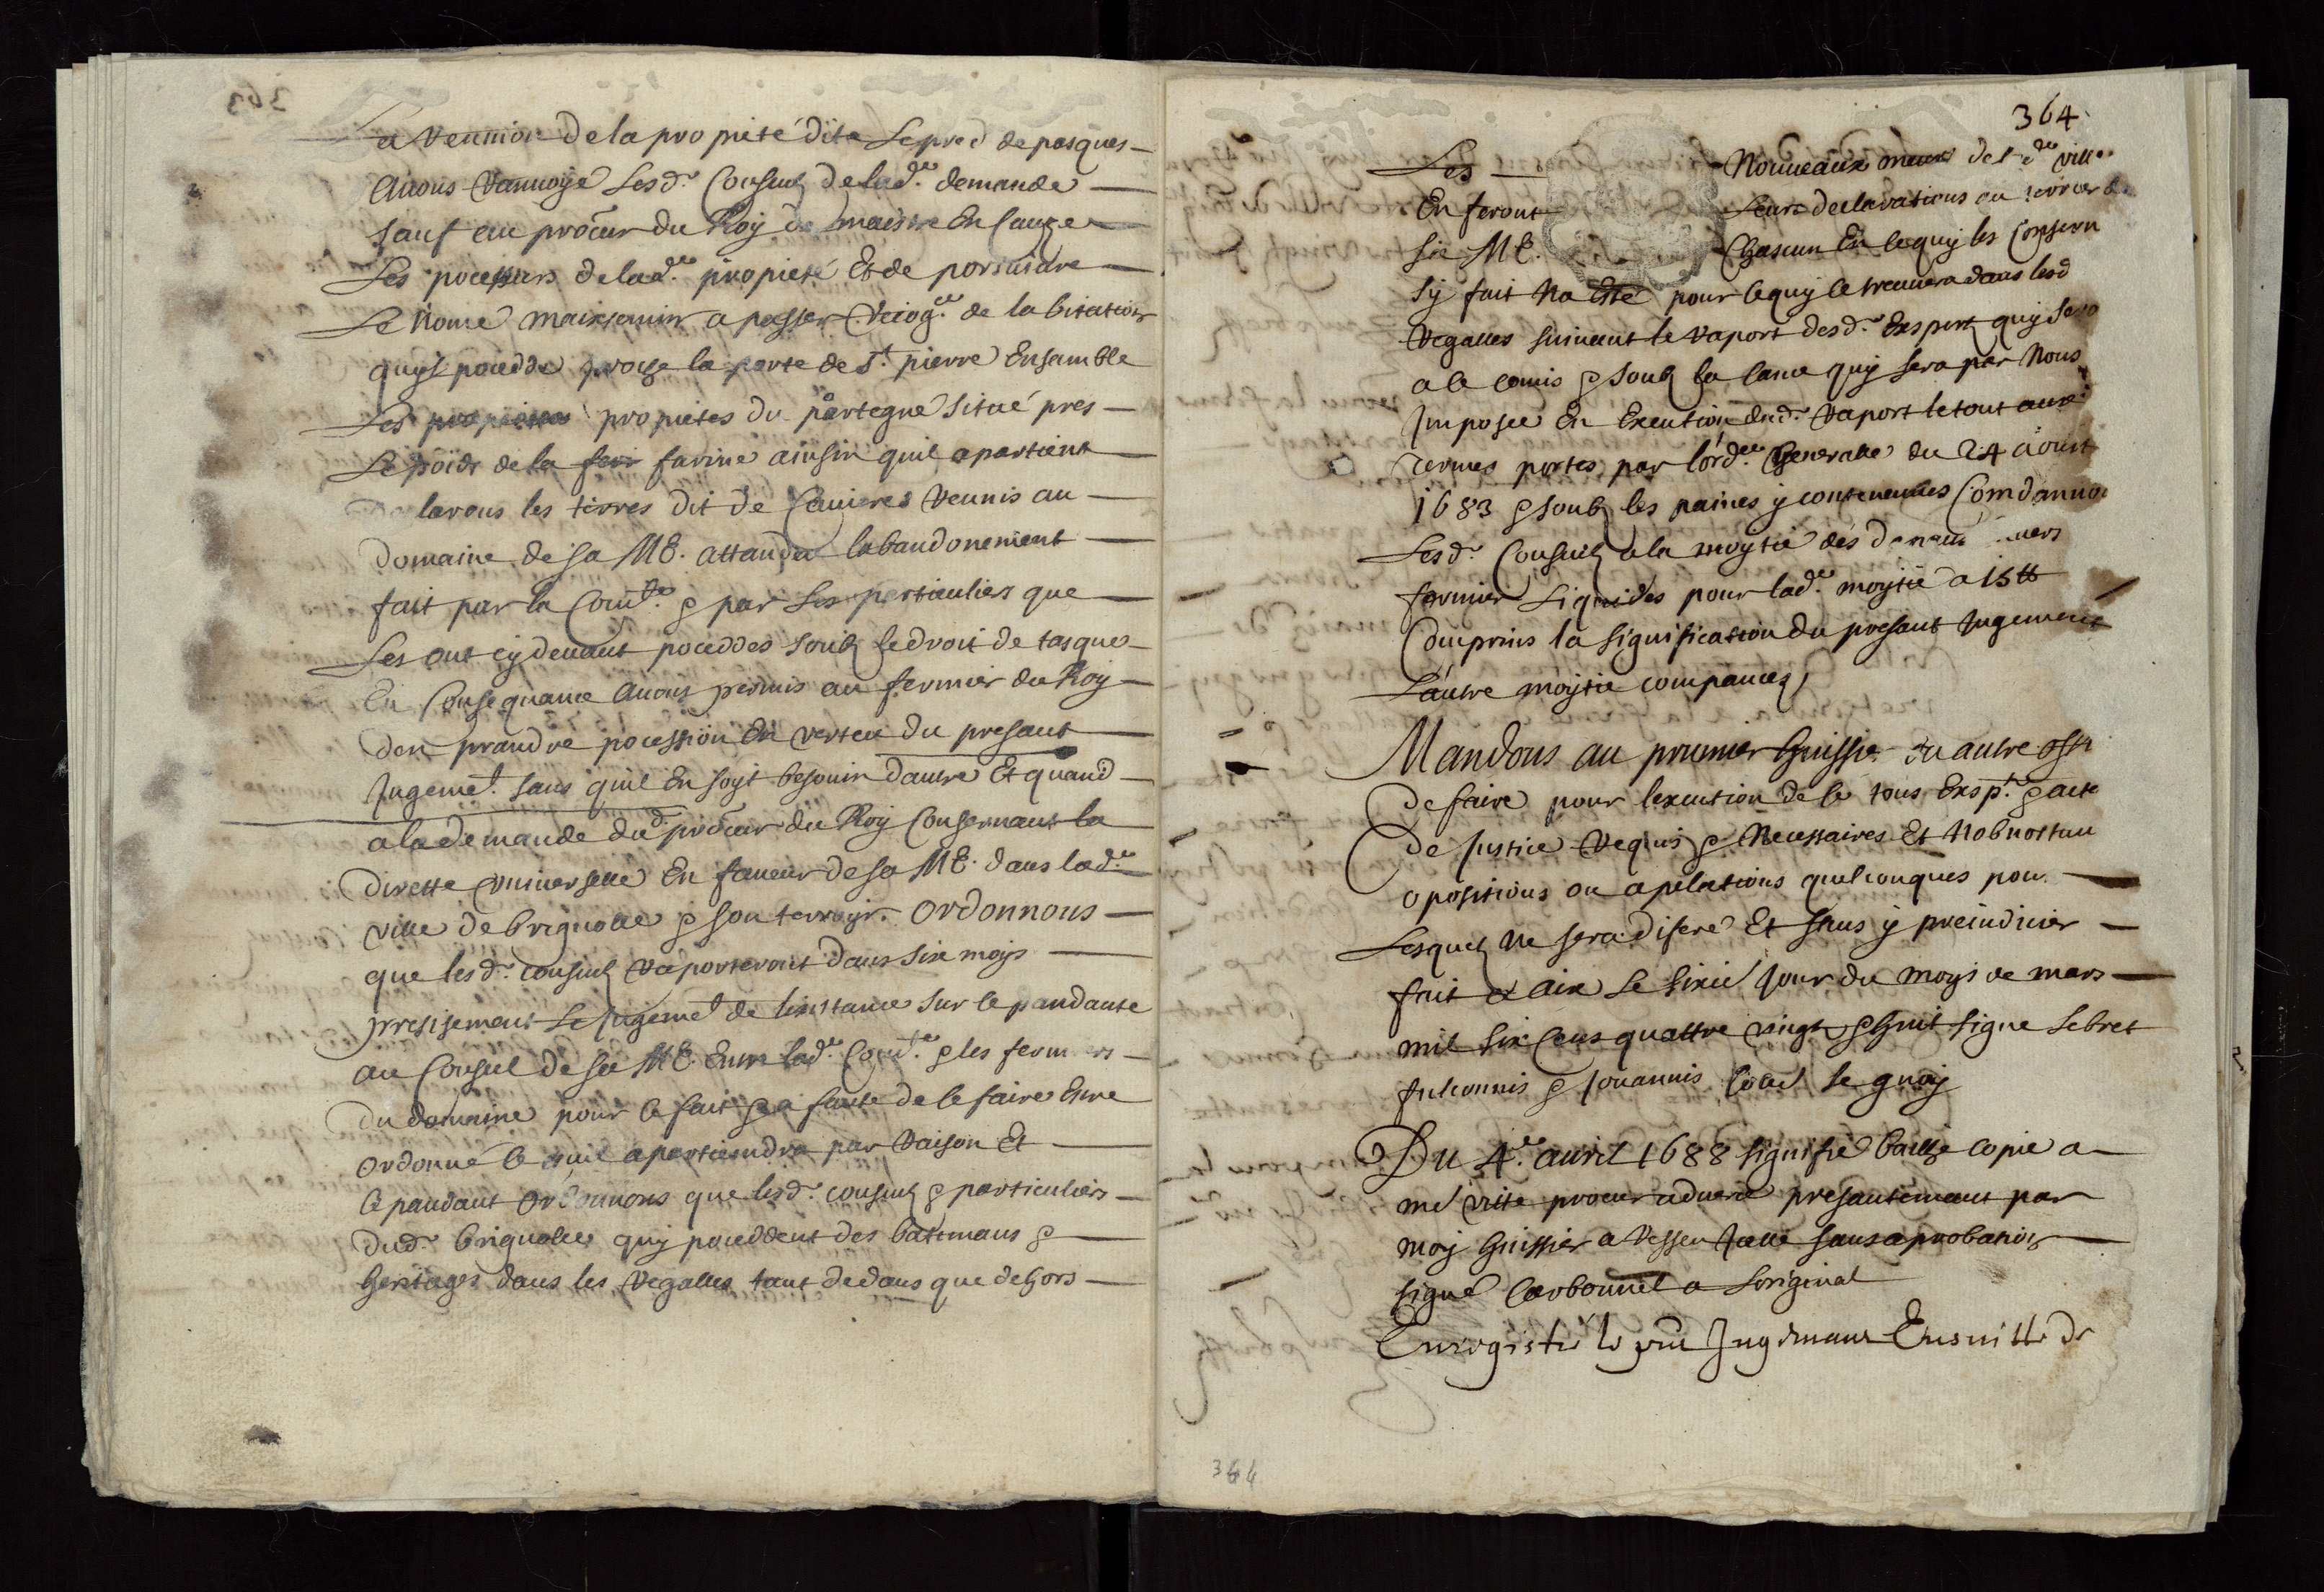 La Reunion de la proprieté dite Le pred de pasques
Avons Ranvoÿé Lesd. Consulz de lad.e demande
Sauf au procur du Roÿ de maistre En Cauze
Les pocessurs de lad.e propieté Et de porsuivre
Le Nomé a passer Recog.ce de labitation
quyl poceddé proche la porte de St. pierre Ensamble
Les propietes du partegue situé pres
Le poids de la farine ainsin quil apartient
les terres dit de Reunis au
domaine de sa ME. attandu labandonement
fait par la Com.té & par Les particuliers que
Les ont cÿ devant poceddes soubz le droit de tasque
En Consequance Avons permis au fermier du Roÿ
den prandre pocession En verteu du presant
Jugemet. sans quil En soÿt besouin dautre Et quand
a la demande dud. procur du Roÿ Consernant la
Directe universelle En faveur de sa ME. dans lad.e
ville de brignolle & son terroyr. Ordonnons
que lesd. consulz raporteront dans six moÿs
presisement Le Jugemet de linstance sur le pandante
au Conseul de sa ME. Entre lad.e Com.té & les fermiers
du domaine pour ce fait & a faute de ce faire Estre
ordonné ce quil apartiendra par Raison Et
Cepandant Ordonnons que lesd. consulz & particuliers
dud. brignolle quÿ poceddent des batimans &
heritages dans les Regalles tant dedans que dehors
363
364
Les Nouveaux de lad.e ville
En feront Leurs declarations au terrier de
Sa ME. Chascun En ce quÿ les Consern
Sÿ fait Na Esté pour ce quÿ ce treuvera dans lesd
Regalles suivant le raport desd. Expertz quÿ sero
a ce comis & soubz la cance quÿ sera par Nous
Imposée En Execution dud. raport le tout aux
termes portes par lord.ce Generalle du 24 aoust
1683 & soubz les paines ÿ contenues Comdannon
Lesd. Consulz a la moytié des
fermier Liquides pour lad.e moytié a 15 ℔
Comprins la signification du presant Jugement
Lautre moytié compancez,
Mandons au prumier huissier ou autre
de faire pour lexecution de ce tous Exsp.ts & acte
de Justice Requis & Necessaires Et Nobnostan
opositions ou apelations quelconques pour
Lesquelz Ne sera diferé Et sans ÿ preiudicier
fait a Aix Le sixié Jour du moÿs de mars
mil six Cens quattre vingtz & huit signe Lebret
fulconnis & Jouannis
Du 4.e avril 1688 signifié baillé copie a
me procur adverse presantemant par
moÿ huissier a sans aprobation
signé Carbonnel a Loriginal
Enregistré le Jugemant Ensuitte de
364